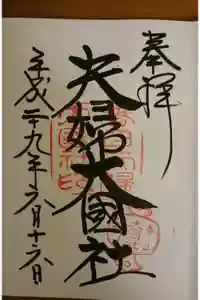 奉拝
夫婦大國社
平成二十九年六月十六日